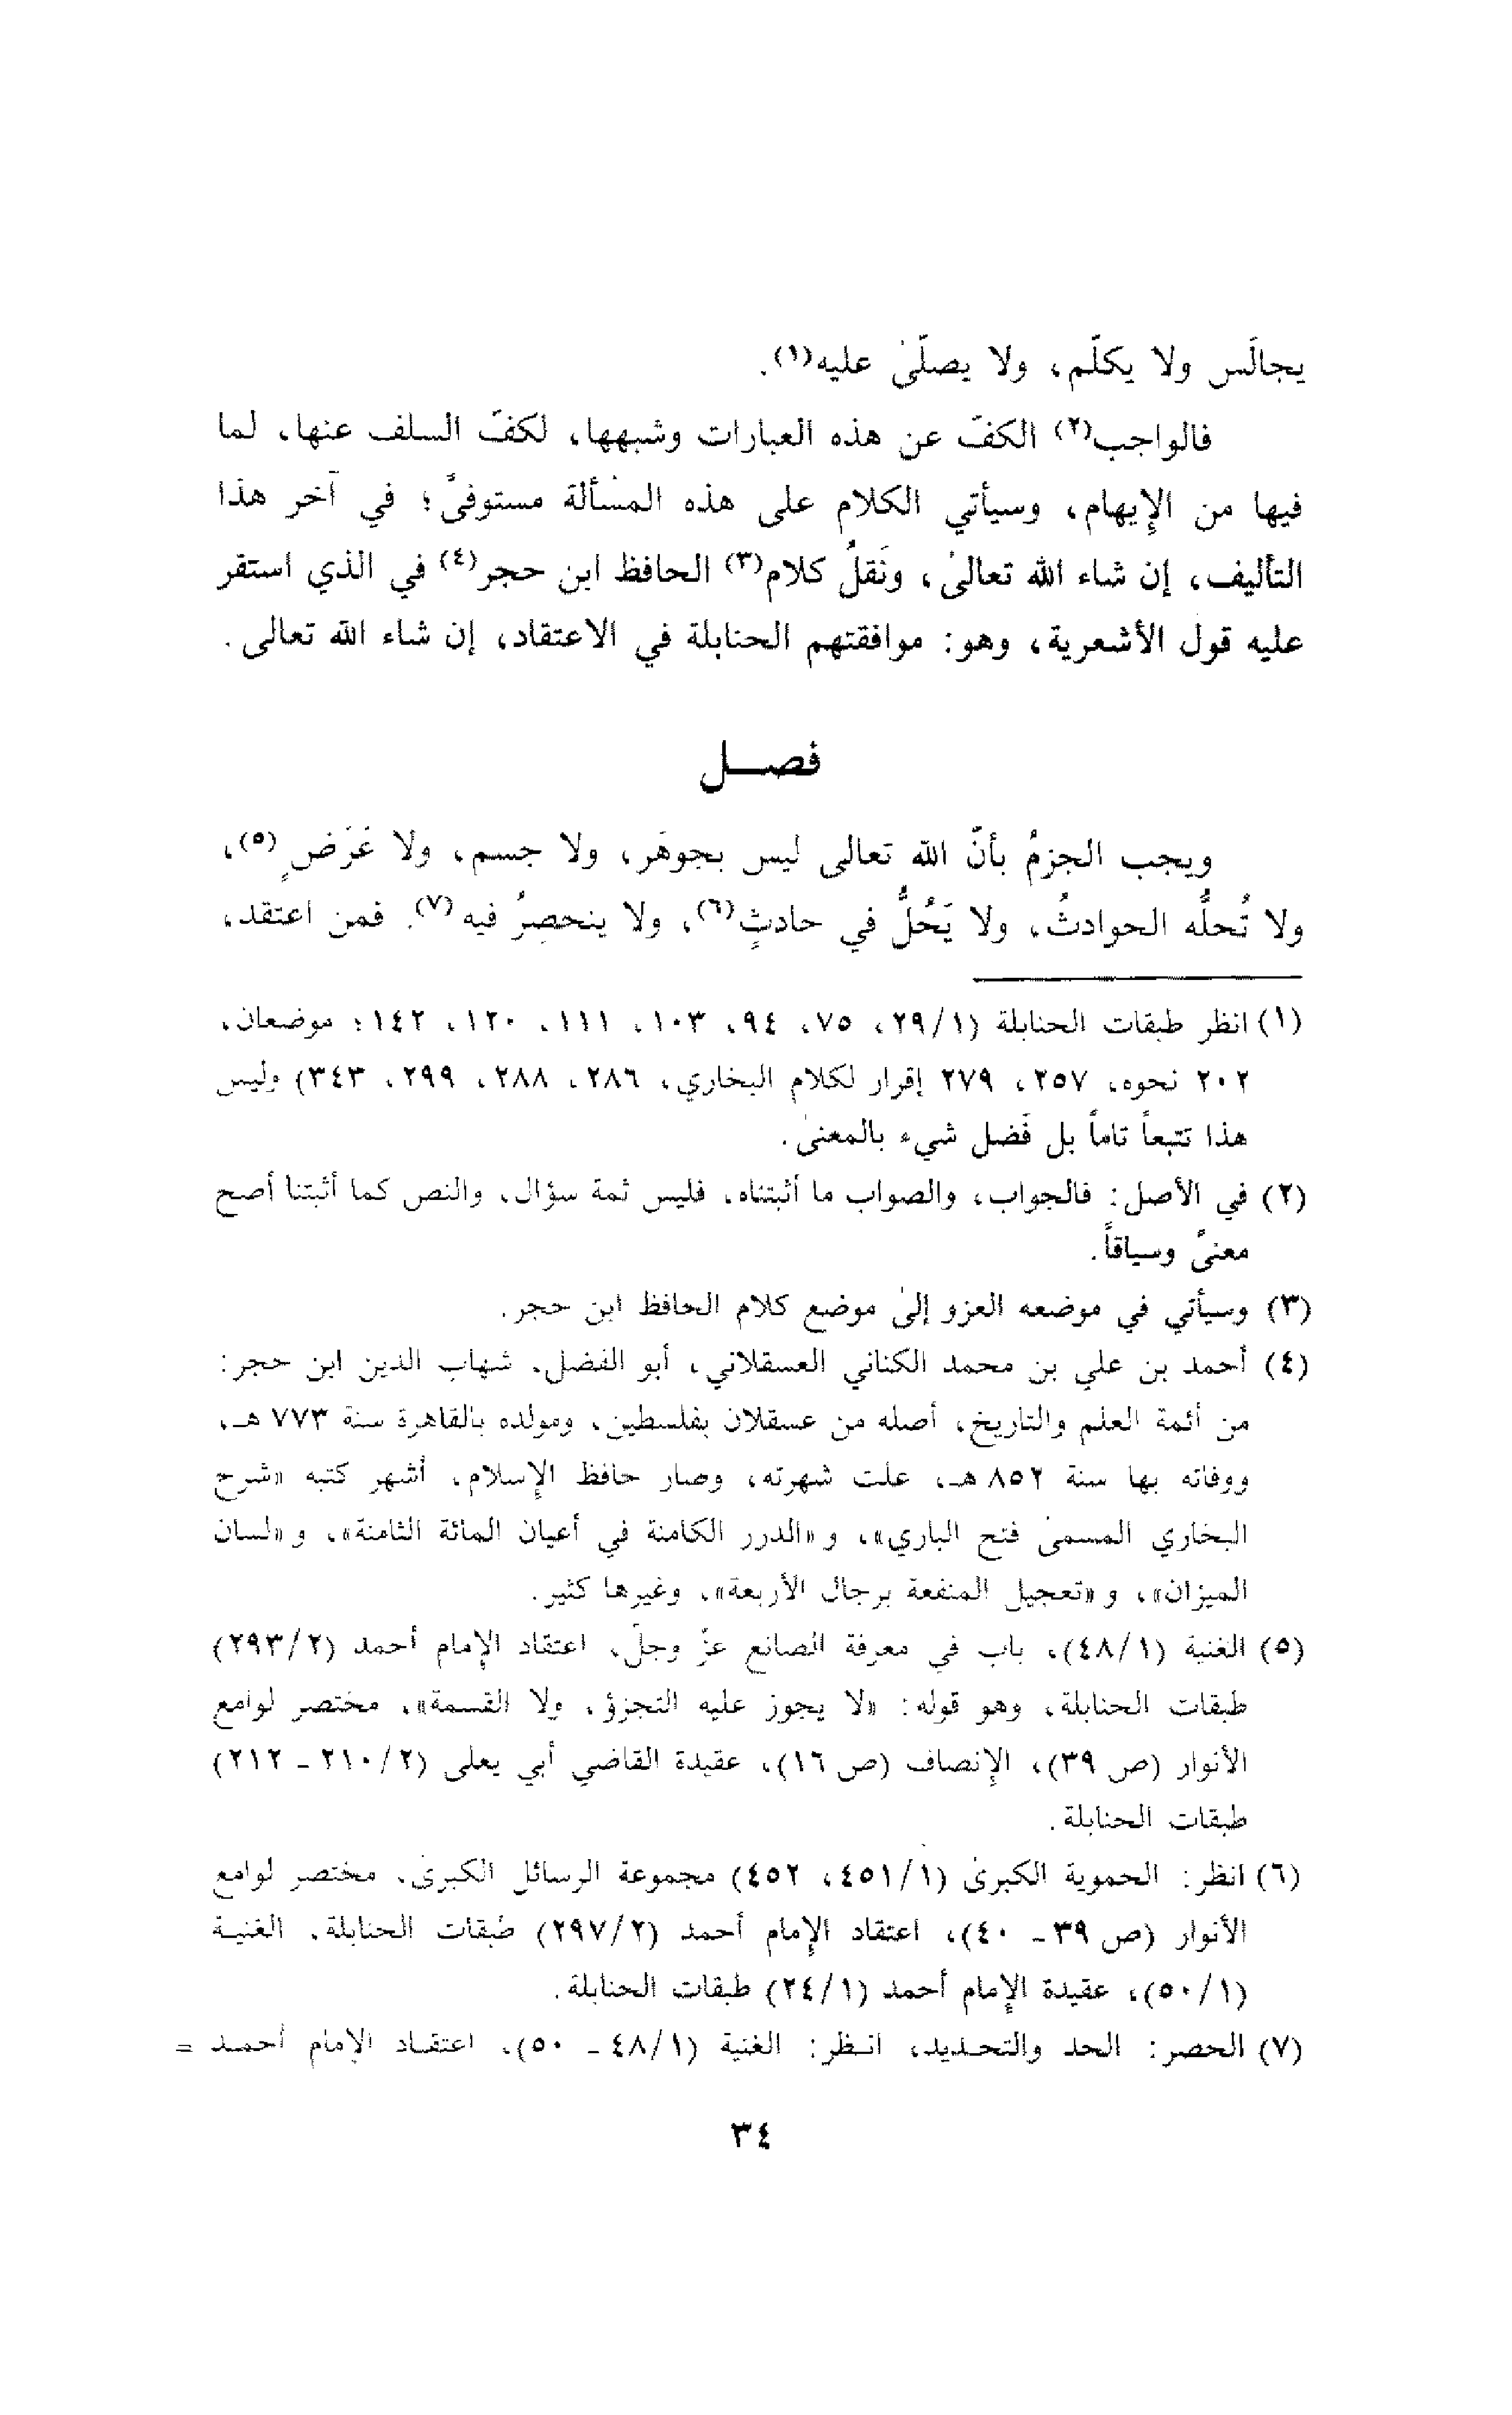 يجالَس ولا يكلَّم، ولا يصلَّىٰ عليه(١).
فالواجب(٢) الكفّ عن هذه العبارات وشبهها، لكفّ السلف عنها، لما
فيها من الإيهام، وسيأتي الكلام على هذه المسألة مستوفىً؛ في آخر هذا
التأليف، إن شاء الله تعالىٰ، ونَقلُ كلام(٣) الحافظ ابن حجر(٤) في الذي استقر
عليه قول الأشعرية، وهو: موافقتهم الحنابلة في الاعتقاد، إن شاء الله تعالى.
فصـــل
ويجب الجزمُ بأنّ الله تعالى ليس بجوهَر، ولا جسم، ولا عَرَضٍ(٥)،
ولا تُحلُّه الحوادثُ، ولا يَحُلُّ في حادثٍ(٦)، ولا ينحصِرُ فيه(٧). فمن اعتقد،
(١) انظر طبقات الحنابلة (٢٩/١، ٧٥، ٩٤، ١٠٣، ١١١، ١٢٠، ١٤٢؛ موضعان،
٢٠٢ نحوه، ٢٥٧، ٢٧٩ إقرار لكلام البخاري، ٢٨٦، ٢٨٨، ٢٩٩، ٣٤٣) وليس
هذا تتبعاً تاماً بل فَضل شيء بالمعنىٰ.
(٢) في الأصل: فالجواب، والصواب ما أثبتناه، فليس ثمة سؤال، والنص كما أثبتنا أصح
معنىً وسياقاً.
(٣) وسيأتي في موضعه العزو إلىٰ موضع كلام الحافظ ابن حجر.
(٤) أحمد بن علي بن محمد الكناني العسقلاني، أبو الفضل، شهاب الدين ابن حجر:
من أئمة العلم والتاريخ، أصله من عسقلان بفلسطين، ومولده بالقاهرة سنة ٧٧٣ هـ،
ووفاته بها سنة ٨٥٢ هـ، علت شهرته، وصار حافظ الإسلام، أشهر كتبه «شرح
البخاري المسمىٰ فتح الباري»، و «الدرر الكامنة في أعيان المائة الثامنة»، و «لسان
الميزان»، و «تعجيل المنفعة برجال الأربعة»، وغيرها كثير.
(٥) الغنية (٤٨/١)، باب في معرفة الصانع عزّ وجلّ، اعتقاد الإمام أحمد (٢٩٣/٢)
طبقات الحنابلة، وهو قوله: «لا يجوز عليه التجزؤ، ولا القسمة»، مختصر لوامع
الأنوار (ص ٣٩)، الإنصاف (ص ١٦)، عقيدة القاضي أبي يعلى (٢١٠/٢ - ٢١٢)
طبقات الحنابلة.
(٦) انظر: الحموية الكبرىٰ (٤٥١/١، ٤٥٢) مجموعة الرسائل الكبرىٰ، مختصر لوامع
الأنوار (ص ٣٩ - ٤٠)، اعتقاد الإمام أحمد (٢٩٧/٢) طبقات الحنابلة، الغنيـة
(٥٠/١)، عقيدة الإمام أحمد (٢٤/١) طبقات الحنابلة.
(٧) الحصر: الحد والتحديد، انظر: الغنية (٤٨/١ - ٥٠)، اعتقاد الإمام أحمد =
٣٤